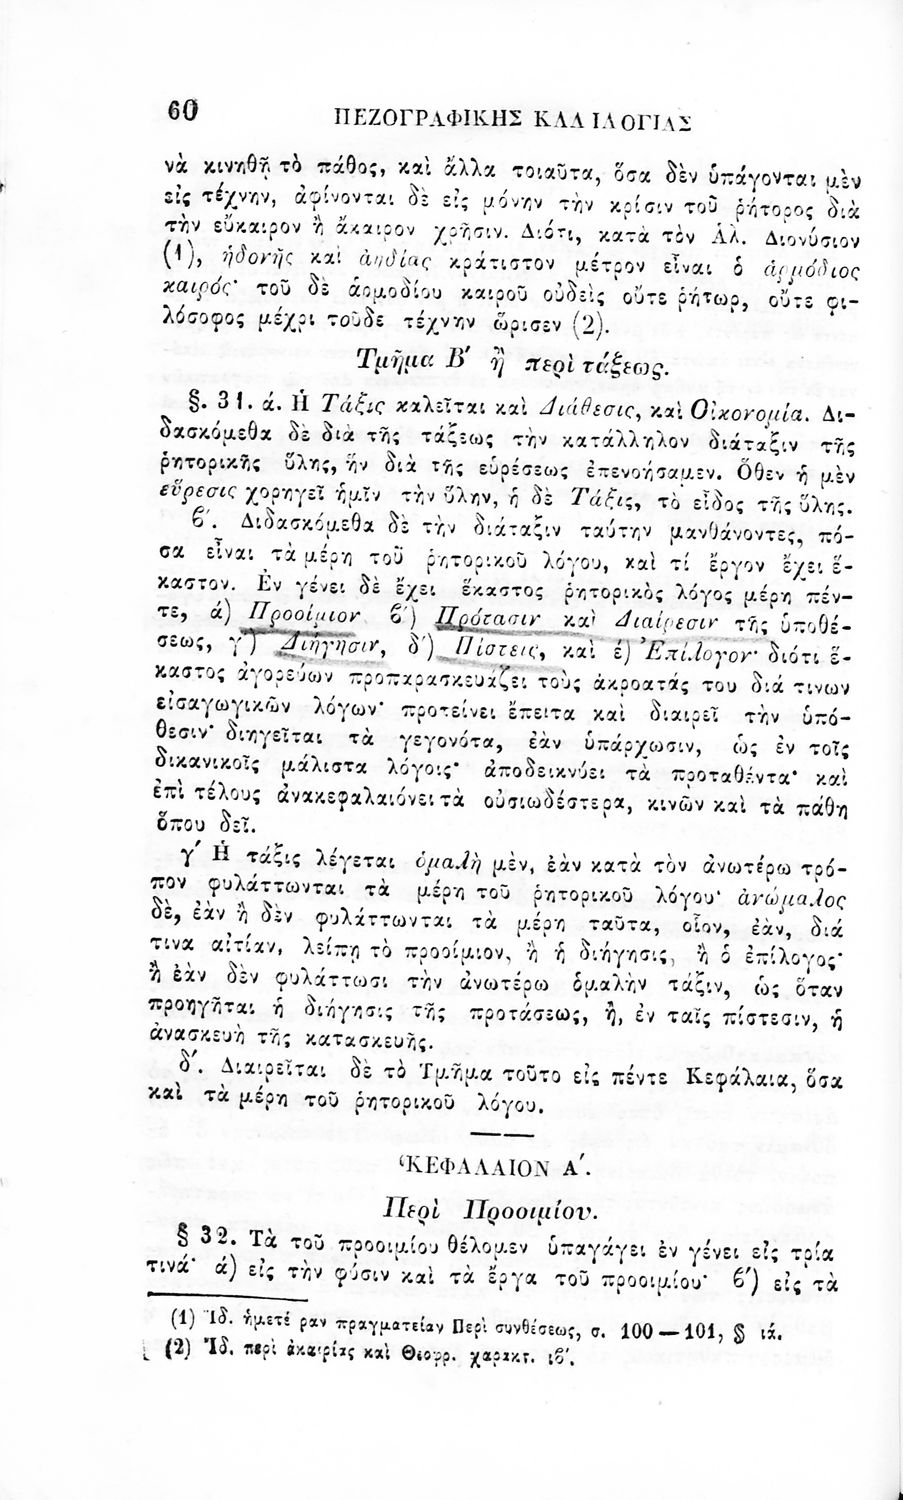 60 ΠΕΖΟΓΡΑΦΙΚΗΣ ΚΑΛΛΙΛΟΓΙΑΣ
νὰ κινηθῇ τὸ πάθος, καὶ ἄλλα τοιαῦτα, ὅσα δὲν ὑπάγονται μὲν
εἰς τέχνην, ἀφίνονται δὲ εἰς μόνην τὴν κρίσιν τοῦ ῥήτορος διὰ
τὴν εὔκαιρον ἢ ἄκαιρον χρῆσιν. Διότι, κατὰ τὸν Ἁλ. Διονύσιον
(1), ἡδονῆς καὶ ἀηδίας κράτιστον μέτρον εἶναι ὁ ἁρμόδιος
καιρός· τοῦ δὲ ἁρμοδίου καιροῦ οὐδεὶς οὔτε ῥήτωρ, οὔτε φι-
λόσοφος μέχρι τοῦδε τέχνην ὥρισεν (2).
Τμῆμα Β′ ἢ περὶ τάξεως.
§. 31. ά. Ἡ Τάξις καλεῖται καὶ Διάθεσις, καὶ Οἰκονομία. Δι-
δασκόμεθα δὲ διὰ τῆς τάξεως τὴν κατάλληλον διάταξιν τῆς
ῥητορικῆς ὕλης, ἣν διὰ τῆς εὑρέσεως ἐπενοήσαμεν. Ὅθεν ἡ μὲν
εὕρεσις χορηγεῖ ἡμῖν τὴν ὕλην, ἡ δὲ Τάξις, τὸ εἶδος τῆς ὕλης.
ϐ′. Διδασκόμεθα δὲ τὴν διάταξιν ταύτην μανθάνοντες, πό-
σα εἶναι τὰ μέρη τοῦ ῥητορικοῦ λόγου, καὶ τί ἔργον ἔχει ἕ-
καστον. Ἐν γένει δὲ ἔχει ἕκαστος ῥητορικὸς λόγος μέρη πέν-
τε, ά) Προοίμιον ϐ′) Πρότασιν καὶ Διαίρεσιν τῆς ὑποθέ-
σεως, γ′) Διήγησιν, δ′) Πίστεις, καὶ έ) Ἐπίλογον· διότι ἕ-
καστος ἀγορεύων προπαρασκευάζει τοὺς ἀκροατάς του διά τινων
εἰσαγωγικῶν λόγων· προτείνει ἔπειτα καὶ διαιρεῖ τὴν ὑπό-
θεσιν· διηγεῖται τὰ γεγονότα, ἐὰν ὑπάρχωσιν, ὡς ἐν τοῖς
δικανικοῖς μάλιστα λόγοις· ἀποδεικνύει τὰ προταθέντα· καὶ
ἐπὶ τέλους ἀνακεφαλαιόνει τὰ οὐσιωδέστερα, κινῶν καὶ τὰ πάθη
ὅπου δεῖ.
γ′ Ἡ τάξις λέγεται ὁμαλὴ μὲν, ἐὰν κατὰ τὸν ἀνωτέρω τρό-
πον φυλάττωνται τὰ μέρη τοῦ ῥητορικοῦ λόγου· ἀνώμαλος
δὲ, ἐὰν ἢ δὲν φυλάττωνται τὰ μέρη ταῦτα, οἷον, ἐὰν, διά
τινα αἰτίαν, λείπῃ τὸ προοίμιον, ἢ ἡ διήγησις, ἢ ὁ ἐπίλογος·
ἢ ἐὰν δὲν φυλάττωσι τὴν ἀνωτέρω ὁμαλὴν τάξιν, ὡς ὅταν
προηγῆται ἡ διήγησις τῆς προτάσεως, ἢ, ἐν ταῖς πίστεσιν, ἡ
ἀνασκευὴ τῆς κατασκευῆς.
δ′. Διαιρεῖται δὲ τὸ Τμῆμα τοῦτο εἰς πέντε Κεφάλαια, ὅσα
καὶ τὰ μέρη τοῦ ῥητορικοῦ λόγου.
ΚΕΦΑΛΑΙΟΝ Α′.
Περὶ Προοιμίου.
§ 32. Τὰ τοῦ προοιμίου θέλομεν ὑπαγάγει ἐν γένει εἰς τρία
τινά· ά) εἰς τὴν φύσιν καὶ τὰ ἔργα τοῦ προοιμίου· ϐ′) εἰς τὰ
(1) Ἴδ. ἡμετέραν πραγματείαν Περὶ συνθέσεως, σ. 100—101, § ιά.
(2) Ἴδ. περὶ ἀκαιρίας καὶ Θεοφρ. χαρακτ. ιϐ′.